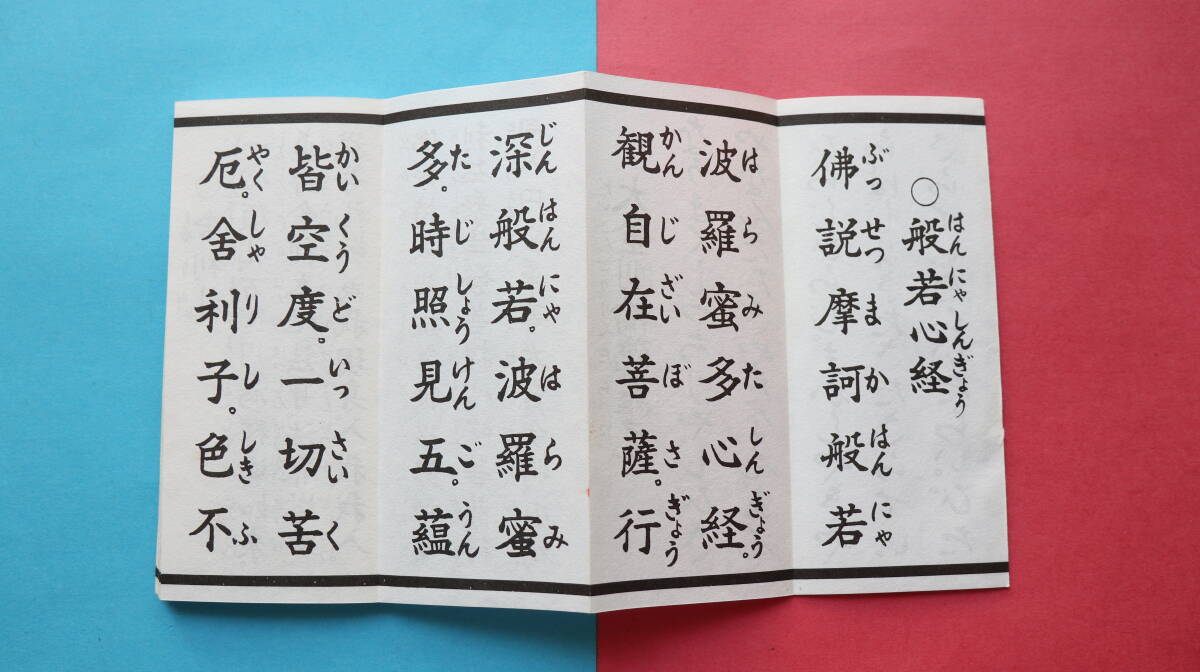 ○般若心経
はんにゃしんぎょう
佛説摩訶般若
ぶっせつまかはんにゃ
波羅蜜多心経。
はらみたしんぎょう
観自在菩薩。行
かんじざいぼさぎょう
深般若。波羅蜜
じんはんにゃはらみ
多。時照見五。蘊
たじしょうけんごうん
皆空度。一切苦
かいくうどいっさいく
厄。舍利子。色不
やくしゃりししきふ